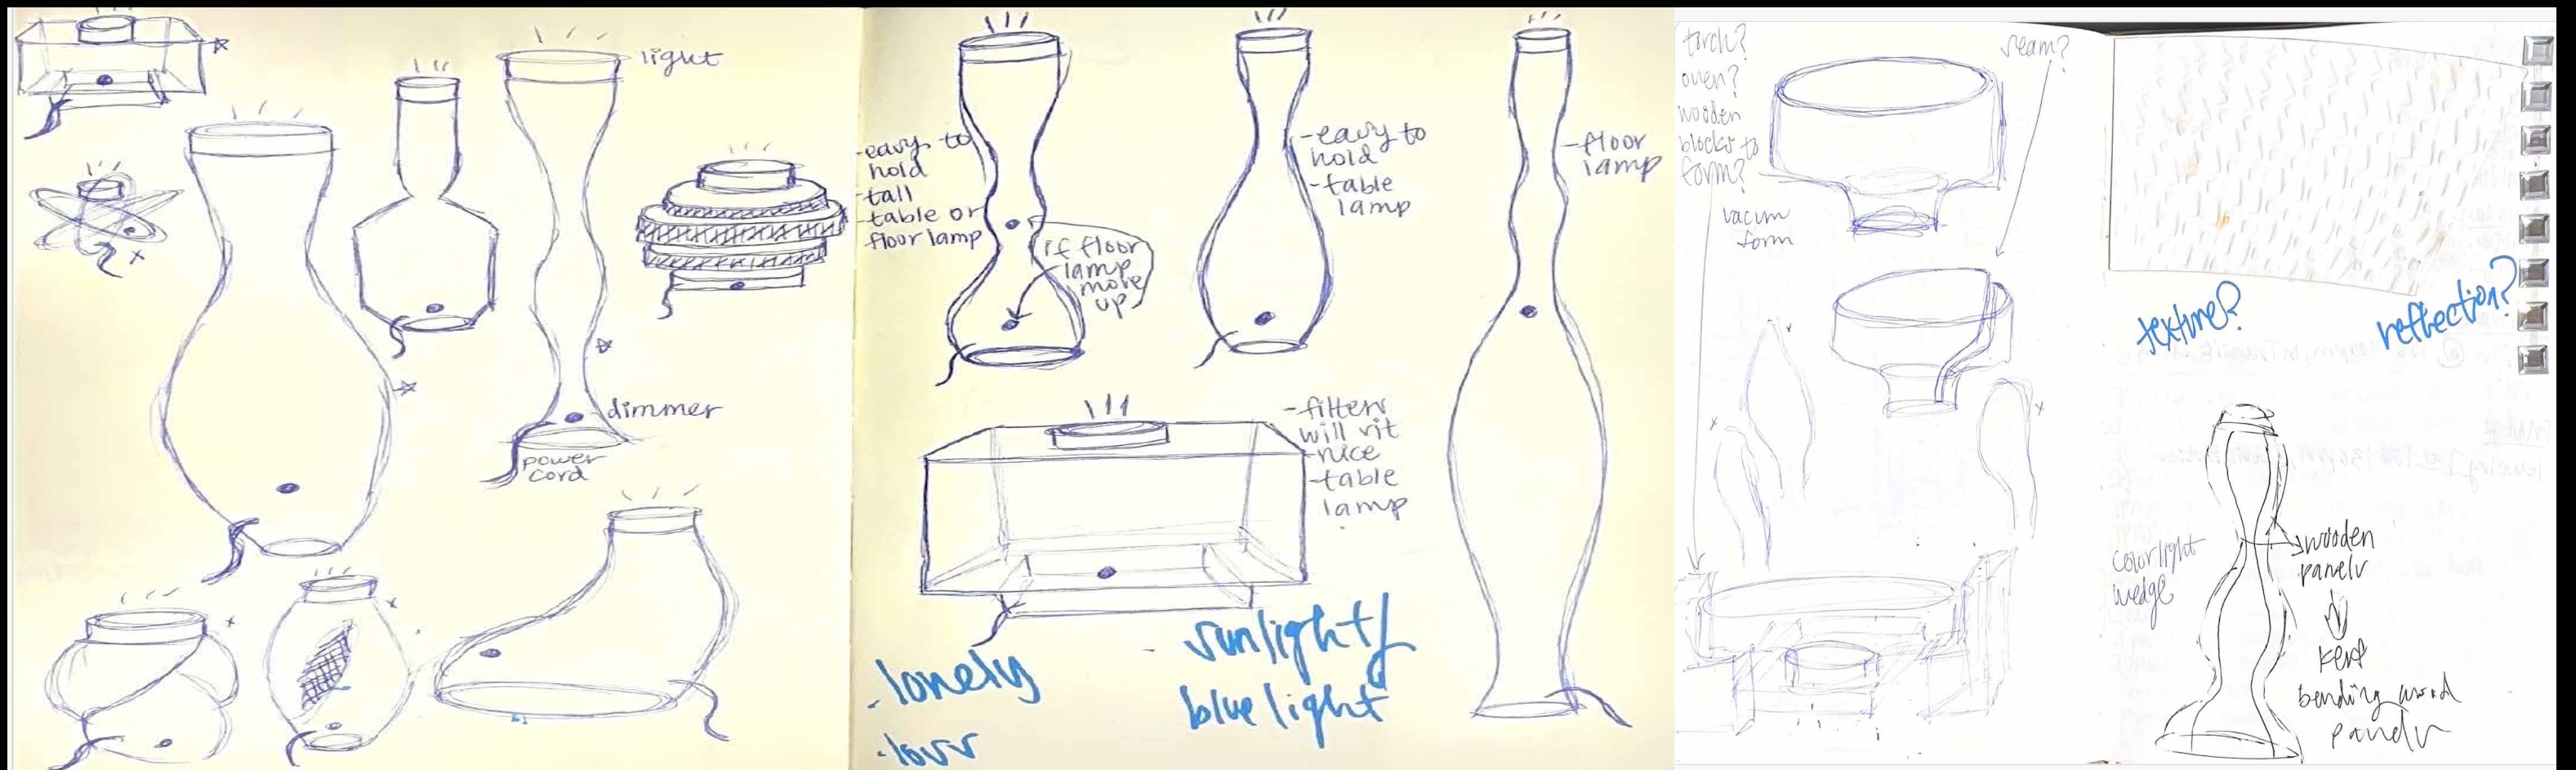 light
dimmer
power
cord
-easy to
hold
-tall
-table or
floor lamp
if floor
lamp
move
up
-easy to
hold
-table
lamp
-floor
lamp
-filters
will sit
-nice
-table
lamp
-lonely
-loss
- sunlight/
blue light
torch?
oven?
wooden
blocks to
form?
vacum
form
seam?
texture?
reflection?
color light
wedge
wooden
panels
kerf
bending wood
panels